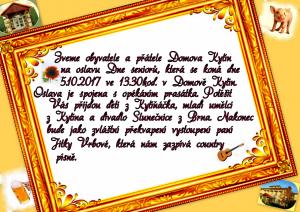 Zveme obyvatele a přátele Domova Kytín
na oslavu Dne seniorů, která se koná dne
5.10.2017 ve 13.30hod. v Domově Kytín.
Oslava je spojena s opékáním prasátka. Potěšit
Vás přijdou děti z Kytíňáčka, mladí umělci
z Kytína a divadlo Slunečnice z Brna. Nakonec
bude jako zvláštní překvapení vystoupení paní
Jitky Vrbové, která nám zazpívá country
písně.